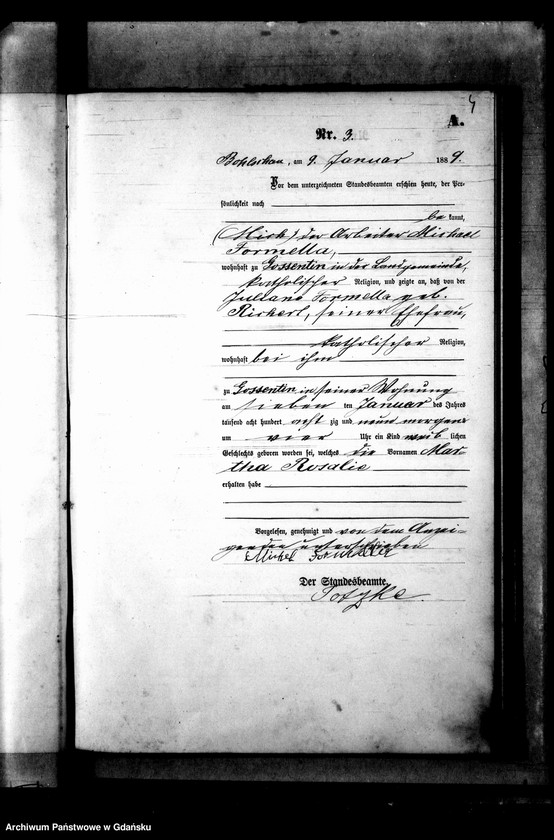 4
A.
Nr. 3.
Bohlschau, am 9. Januar 1889.
Vor dem unterzeichneten Standesbeamten erschien heute, der Per-
sönlichkeit nach
be kannt,
der Arbeiter Michael
Formella,
wohnhaft zu Gossentin in der Landgemeinde,
katholischer Religion, und zeigte an, daß von der
Juliane Formella geb.
seiner Ehefrau,
katholischer Religion,
wohnhaft bei ihm
zu Gossentin in seiner Wohnung
am sieben ten Januar des Jahres
tausend acht hundert acht zig und neun morgens
um vier Uhr ein Kind weib lichen
Geschlechts geboren worden sei, welches die Vornamen Mar-
tha Rosalie
erhalten habe
Vorgelesen, genehmigt und von dem Anzei-
genden unterschrieben
Michel Formella
Der Standesbeamte.
Archiwum Państwowe w Gdańsku